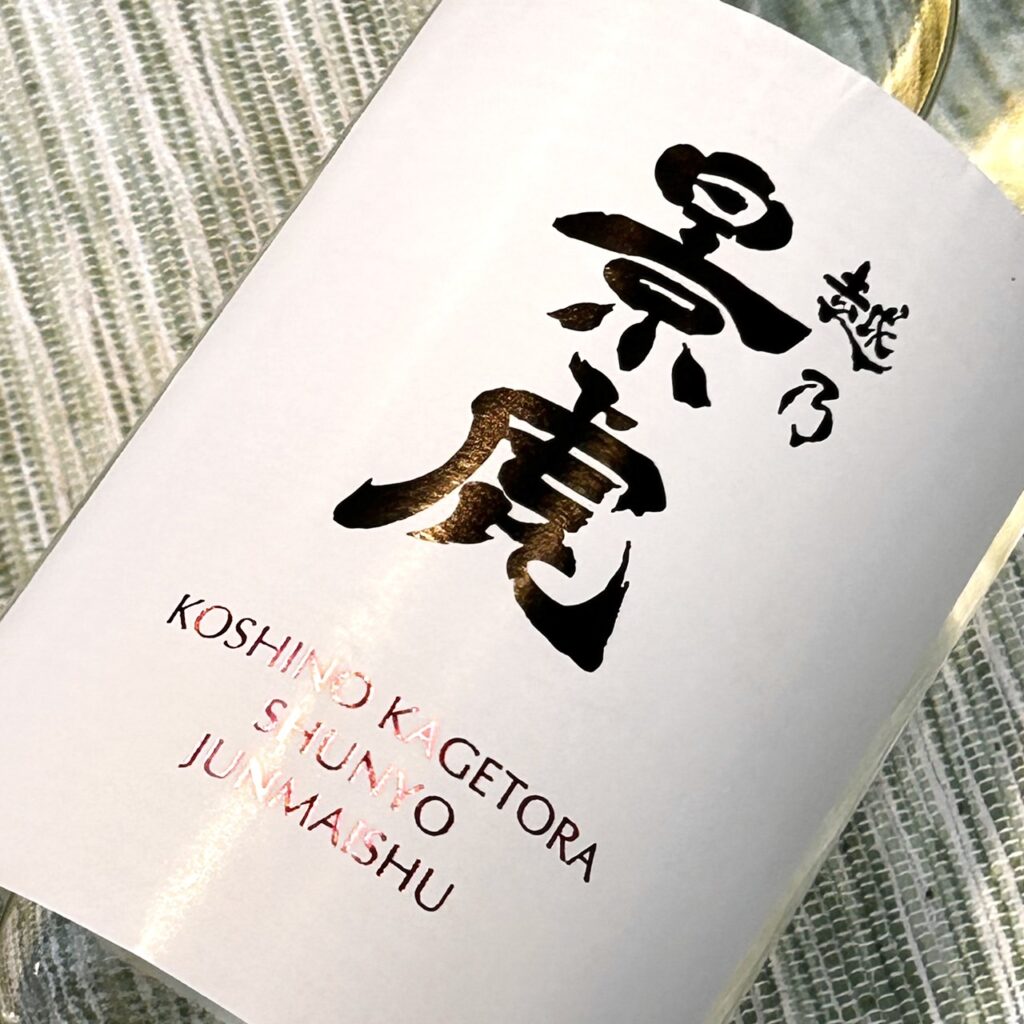 越乃
景虎
KOSHINO KAGETORA
SHUNYO
JUNMAISHU